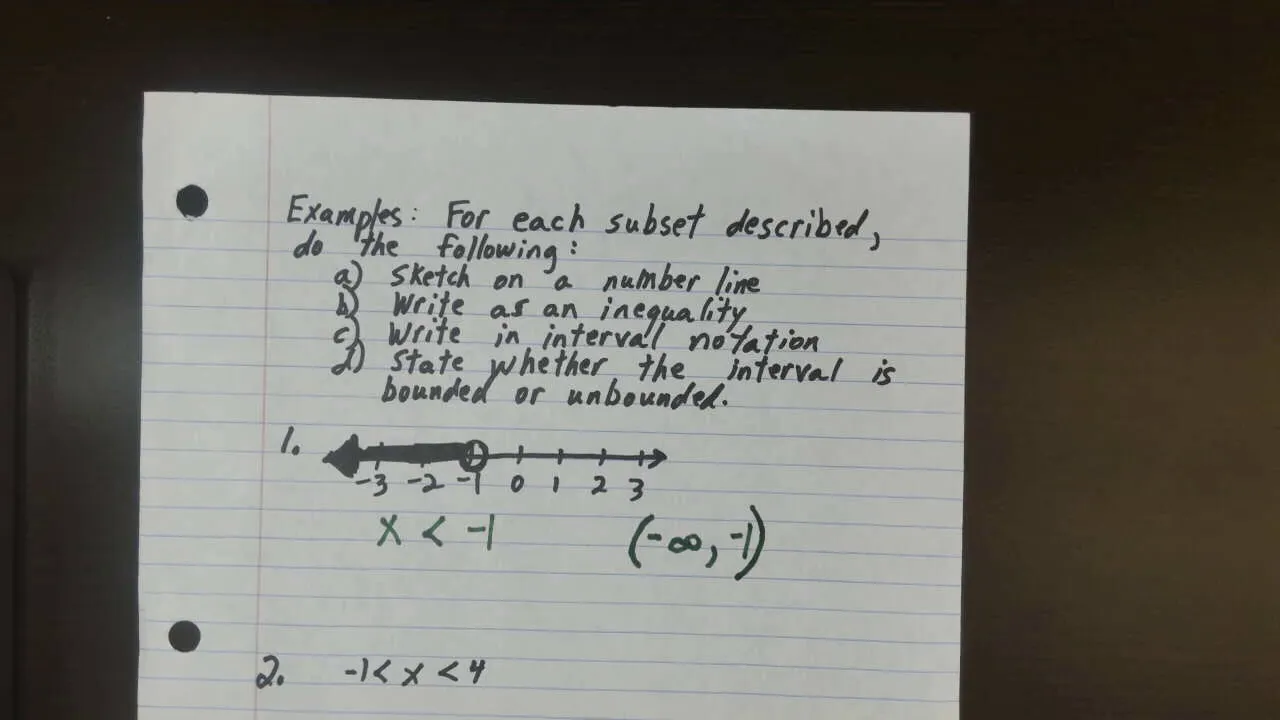 Examples: For each subset described,
do the following:
a) Sketch on a number line
b) Write as an inequality
c) Write in interval notation
d) State whether the interval is
bounded or unbounded.
1.
-3 -2 -1 0 1 2 3
x < -1 (-∞, -1)
2. -1 < x < 4